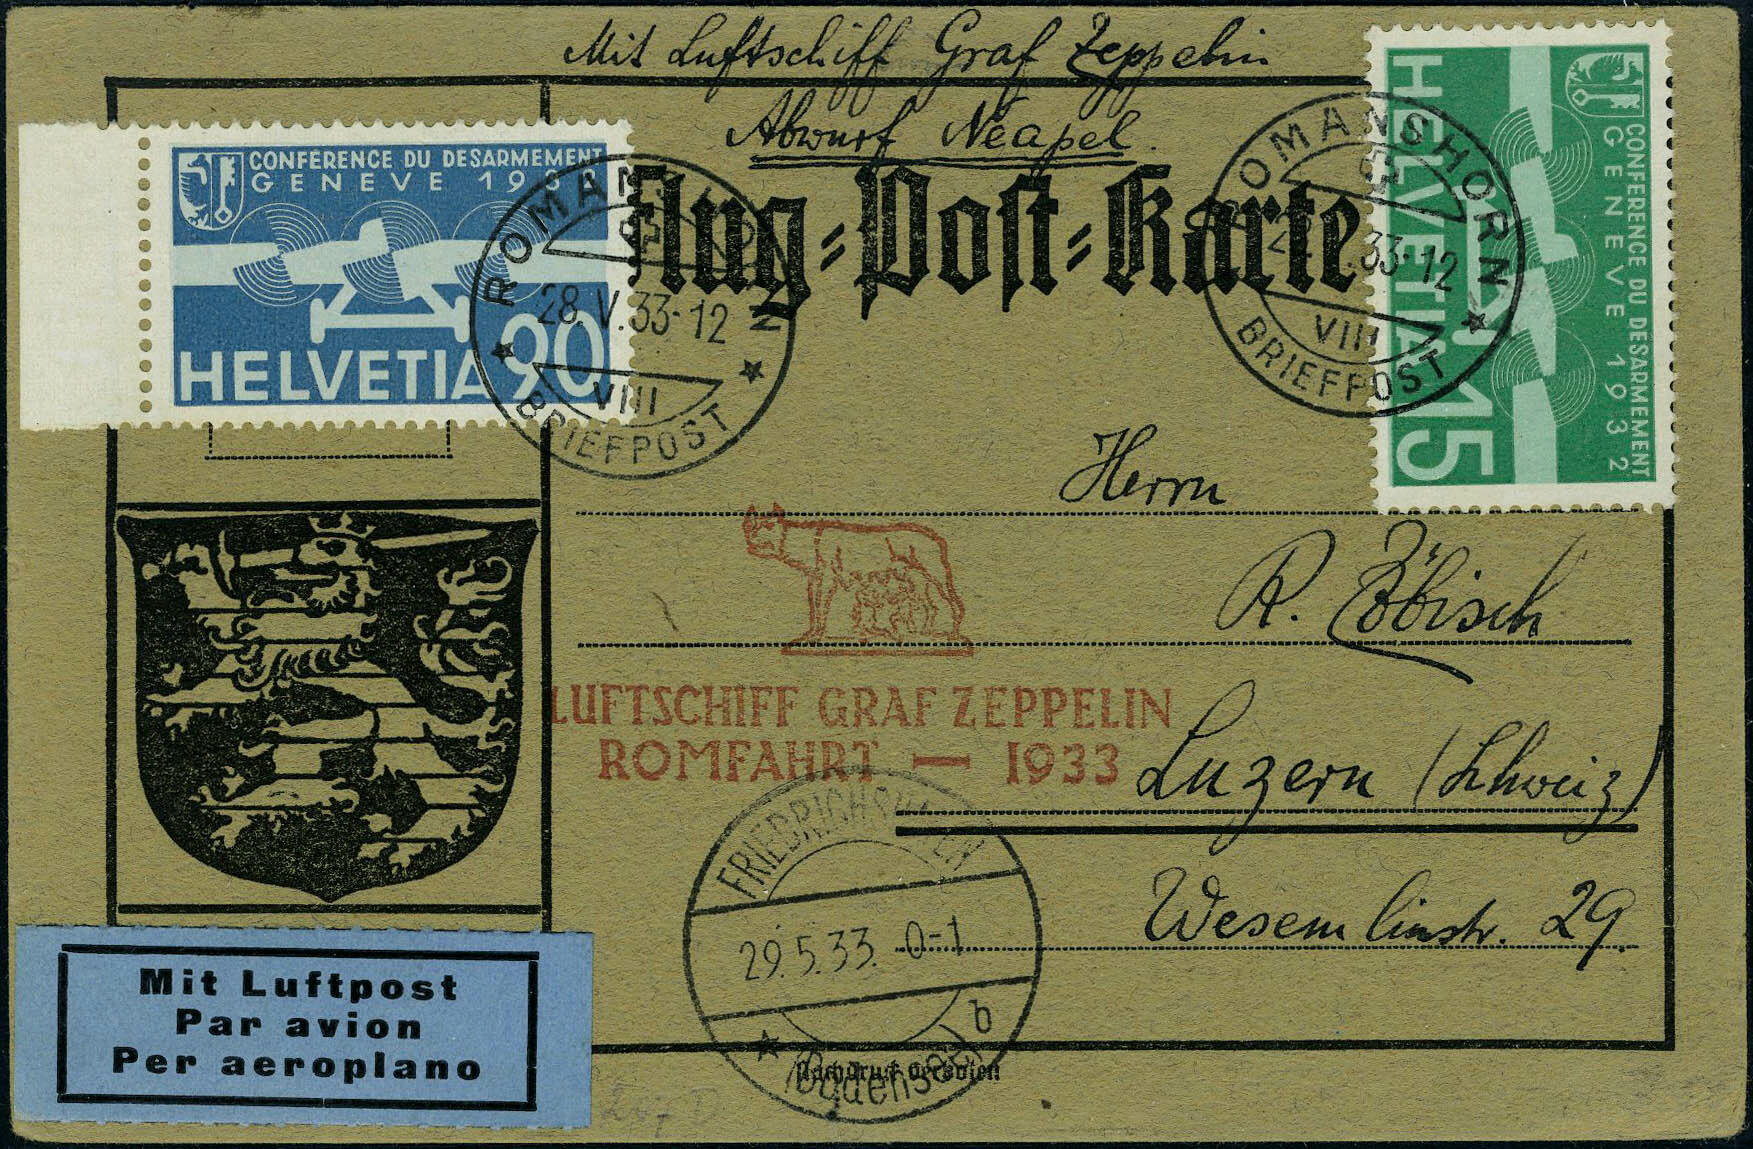 Mit Luftschiff Graf Zeppelin
Abwurf Neapel.
CONFERENCE DU DESARMEMENT
GENEVE 1932
HELVETIA 90
ROMANSHORN
28.V.33-12
VIII
BRIEFPOST
Flug-Post-Karte
ROMANSHORN
28.V.33-12
VIII
BRIEFPOST
CONFERENCE DU DESARMEMENT
GENEVE 1932
HELVETIA 15
Herrn
R. Zöbisch
LUFTSCHIFF GRAF ZEPPELIN
ROMFAHRT — 1933
Luzern (Schweiz)
Wesemlinstr. 29.
FRIEDRICHSHAFEN
29.5.33. 0-1
b
(Bodensee)
Nachdruck verboten
Mit Luftpost
Par avion
Per aeroplano